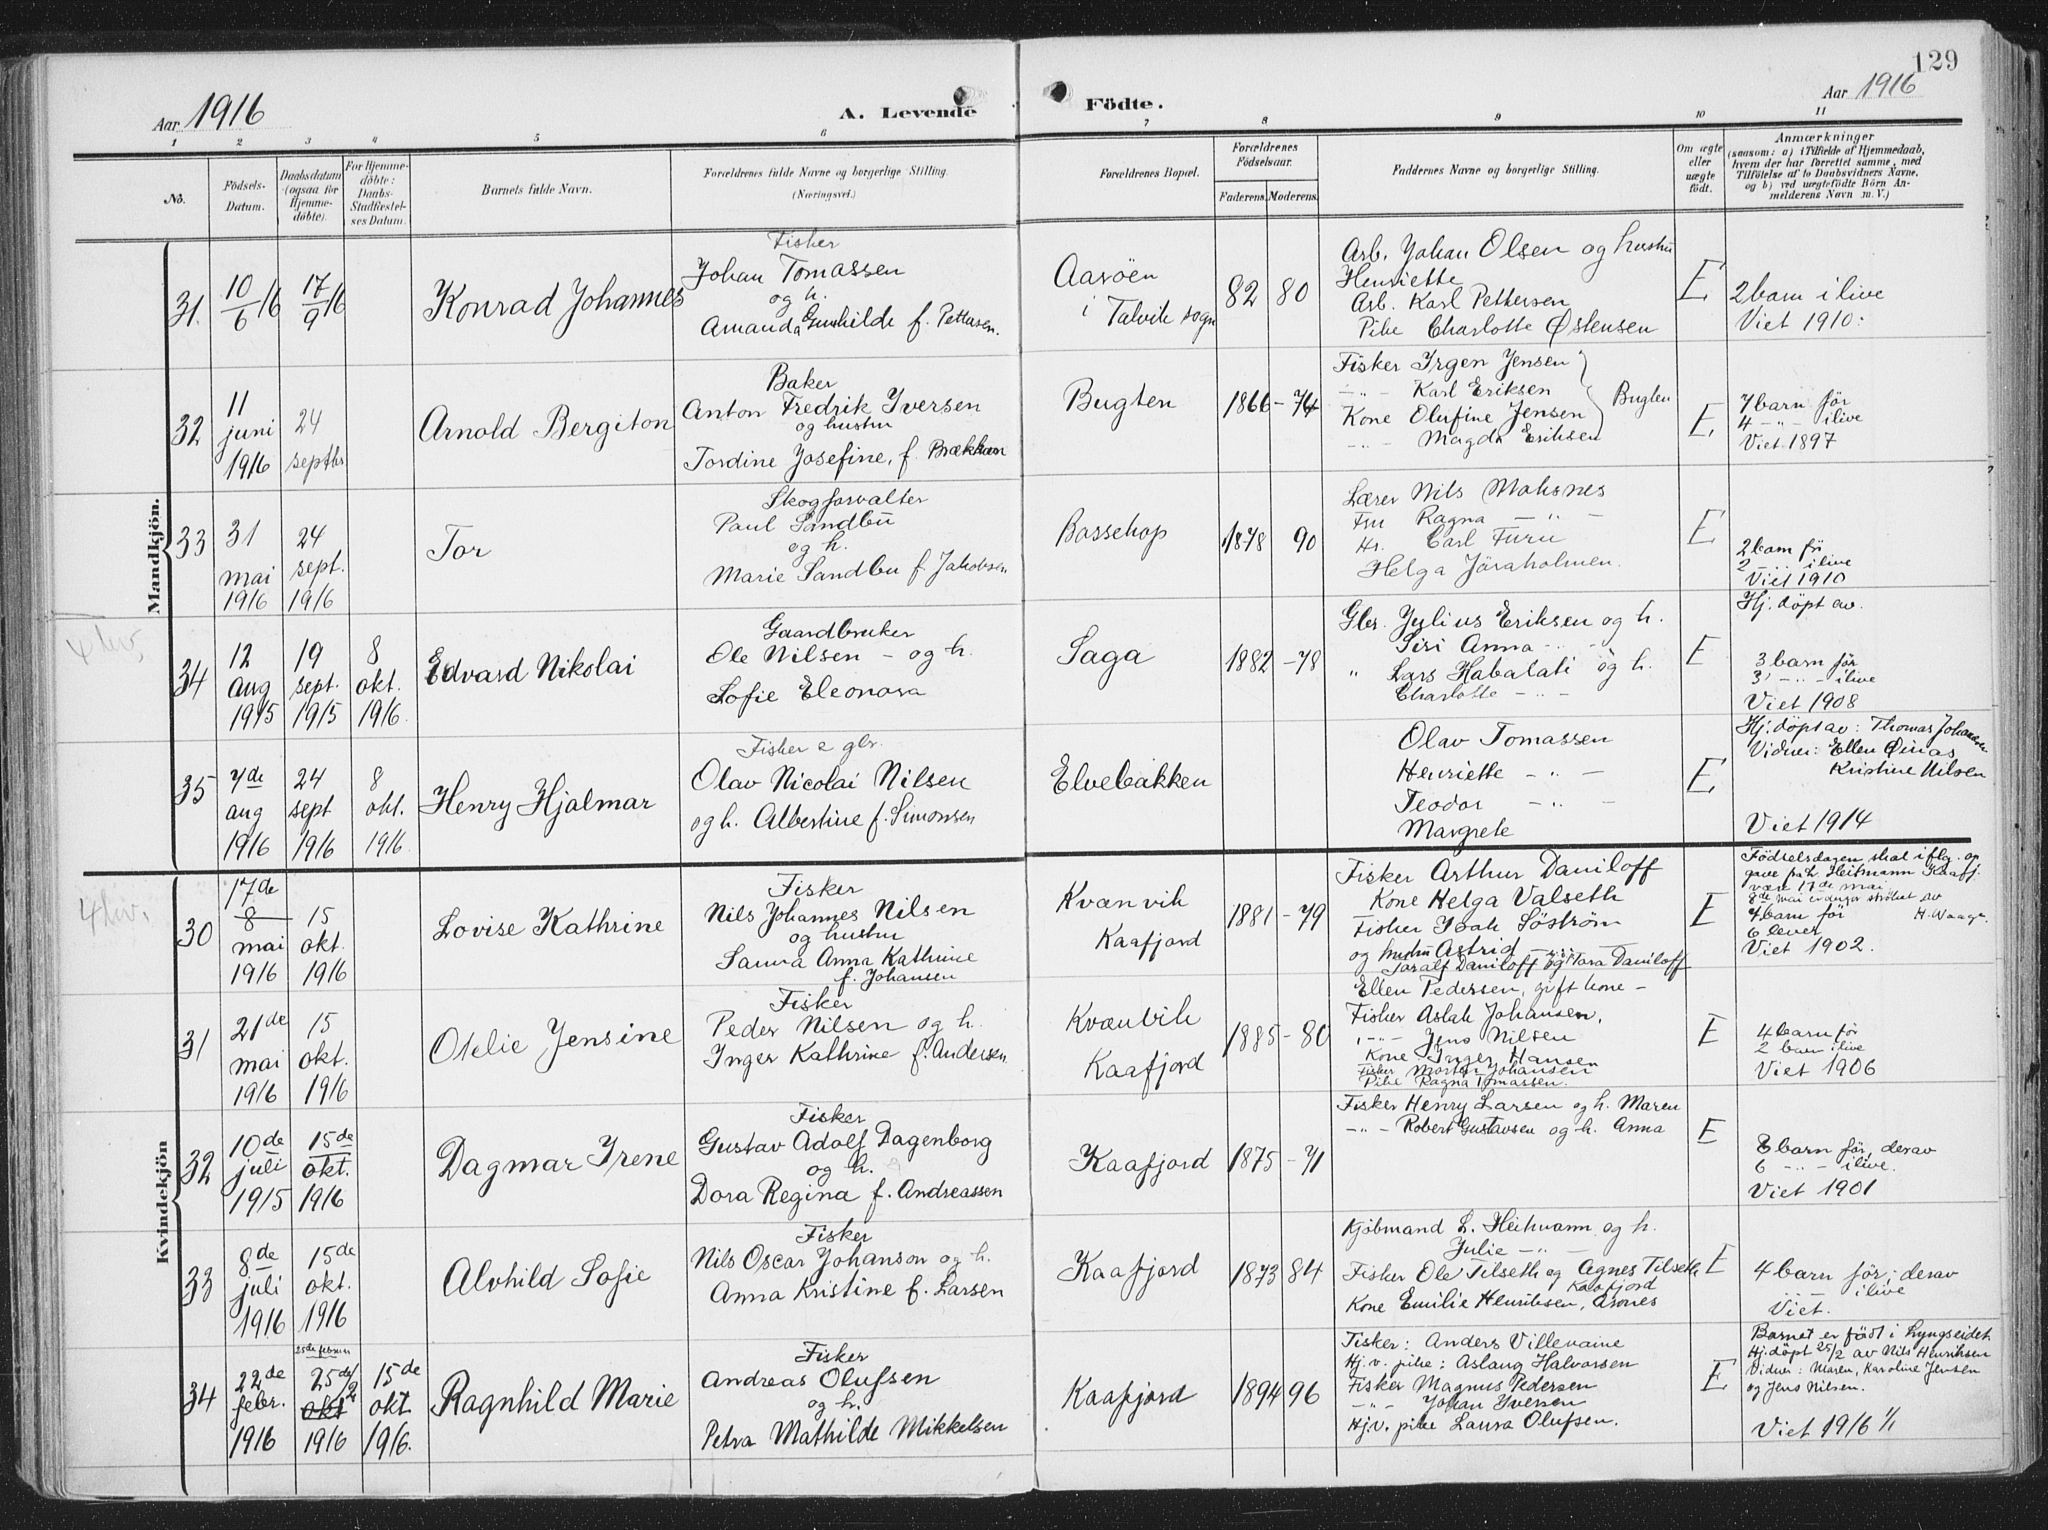 129
Aar 1916
A. Levende
Födte.
Aar 1916
1 2 3 4 5 6 7 8 9 10 11
No.
Födsels-
Datum.
Daabsdatum
(ogsaa för
Hjemme-
döbte).
For Hjemme-
döbte:
Daabs-
Stadfæstel-
ses Datum.
Barnets fulde Navn.
Forældrenes fulde Navne og borgerlige Stilling.
(Næringsvei.)
Forældrenes Bopæl.
Forældrenes
Födselsaar.
Faderens. Moderens.
Faddernes Navne og borgerlige Stilling.
Om ægte
eller
uægte
født.
Anmærkninger
(saasom: a) i Tilfælde af Hjemmedaab,
hvem der har forrettet samme, med
Tilföielse af to Daabsvidners Navne,
og b) ved uægtefödte Börn An-
melderens Navn m. V.)
Mandkjön.
31. 10/6 16 17/9 16
Konrad Johannes
Fisker
Johan Tomassen
og h.
Amanda Gunhilde f. Pettersen.
Aaröen
i Talvik sogn
82 80
Arb. Johan Olsen og hustru
Henriette
Arb. Karl Pettersen
Pike Charlotte Østensen
E
2 barn i live
Viet 1910.
32
11
juni
1916
24
septbr.
Arnold Bergiton
Baker
Anton Fredrik Iversen
og hustru
Tordine Josefine, f. Brækkan
Bugten
1866 - 74
Fisker Irgen Jensen
-"- Karl Eriksen
Kone Olufine Jensen
-"- Magda Eriksen
Bugten
E
7 barn før
4 -"- ilive
Viet 1897
33
31
mai
1916
24
sept.
1916
Tor
Skogforvalter
Paul Sandbu
og h.
Marie Sandbu f. Jakobsen
Bossekop
1878 90
Lærer Nils Moksnes
Fru Ragna -"-
Hr. Carl Furu
Helga Jöraholmen.
E
2 barn før
2 -"- ilive
Viet 1910
4 liv.
34
12
aug
1915
19
sept.
1915
8
okt.
1916.
Edvard Nikolai
Gaardbruker
Ole Nilsen - og h.
Sofie Eleonora
Saga
1882 - 78
Gbr. Julius Eriksen og h.
Siri Anna -"-
" Lars Habalati og h.
Charlotte -"-
E
Hj. døpt av.
3 barn før
3 -"- ilive
Viet 1908
35
7de
aug
1916
24
sept
1916
8
okt.
1916.
Henry Hjalmar
Fisker & gbr.
Olav Nicolai Nilsen
og h. Albertine f. Simonsen
Elvebakken
Olav Tomassen
Henriette -"-
Teodor -"-
Margrete
E
Hj. döpt av: Thomas Johansen
Vidner: Ellen Ønas
Kristine Nilsen
Viet 1914
Kvindekjön
4 liv.
30
17de
8
mai
1916
15
okt.
1916
Lovise Kathrine
Fisker
Nils Johannes Nilsen
og hustru
Sanna Anna Kathrine
f. Johansen
Kvænvik
Kaafjord
1881 - 79
Fisker Arthur Daniloff
Kone Helga Valseth
Fisker Isak Søstrøm
og hustru Astrid -"-
Toralf Daniloff og Tora Daniloff
Ellen Pedersen, gift kone -
E
Födselsdagen skal iflg. op
gave fra L. Heitmann Kaafj.
være 17de mai
8de mai er derfor strøket av
H. Waage
7 barn før
6 lever
Viet 1902.
31
21de
mai
1916
15
okt.
1916
Otelie Jensine
Fisker
Peder Nilsen og h.
Inger Kathrine f. Andersen
Kvænvik
Kaafjord
1885 - 80
Fisker Aslak Johansen,
-"- Jens Nilsen
Kone Inger Hansen
Fisker Morten Johansen
Pike Ragna Tomassen.
E
4 barn før
2 barn ilive
Viet 1906
32
10de
juli
1915
15de
okt.
1916
Dagmar Irene
Fisker
Gustav Adolf Dagenborg
og h.
Dora Regina f. Andreassen
Kaafjord
1875 - 71
Fisker Henry Larsen og h. Maren
-"- Robert Gustavsen og h. Anna
E
8 barn før, derav
6 -"- ilive.
Viet 1901
33
8de
juli
1916
15de
okt.
1916
Alvhild Sofie
Fisker
Nils Oscar Johanson og h.
Anna Kristine f. Larsen
Kaafjord
1873 84
Kjöbmand L. Heitmann og h.
Julie -"-
Fisker Ole Tilseth og Agnes Tilseth
Kaafjord
Kone Emilie Henriksen, Arones
E
4 barn før; derav
ilive
Viet.
34
22de
febr.
1916
25de februar
25de/2
okt
1916
15de
okt
1916.
Ragnhild Marie
Fisker
Andreas Olufsen
og h.
Petra Mathilde Mikkelsen
Kaafjord
1894 96
Fisker: Anders Villevaine
Hj. v. pike: Aslaug Halvorsen
Fisker Magnus Pedersen
-"- Johan Iversen
Hj. v. pike Laura Olufsen.
E
Barnet er född i Lyngseidet
Hj. döpt 25/2 av Nils Henriksen
Vidner: Maren, Karoline Jensen
og Jens Nilsen.
Viet 1916 1/1